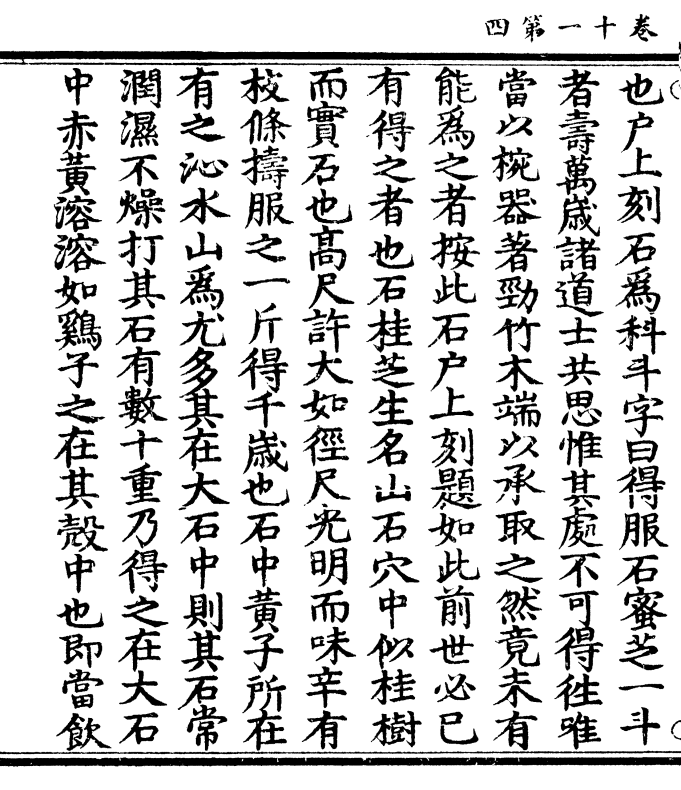 卷十一第四
也户上刻石為科斗字曰得服石蜜芝一斗
者壽萬歲諸道士共思惟其處不可得往唯
當以椀器著勁竹木端以承取之然竟未有
能為之者按此石户上刻題如此前世必已
有得之者也石桂芝生名山石穴中似桂樹
而實石也高尺許大如徑尺光明而味辛有
枝條擣服之一斤得千歲也石中黃子所在
有之沁水山為尤多其在大石中則其石常
潤濕不燥打其石有數十重乃得之在大石
中赤黃溶溶如鷄子之在其殼中也即當飲